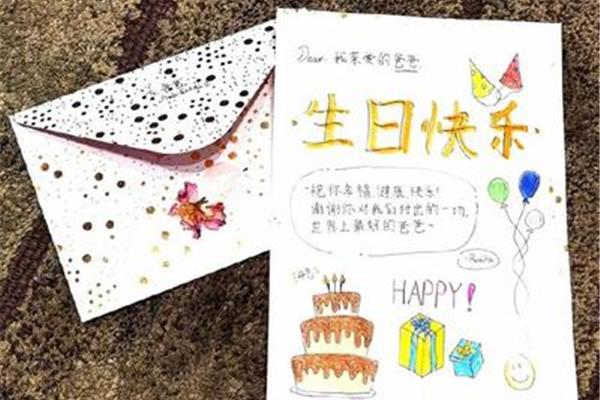 Dear 我亲爱的爸爸
生日快乐
祝你幸福,健康,快乐!
谢谢你对我们付出的一切,
世界上最好的爸爸~
HAPPY!